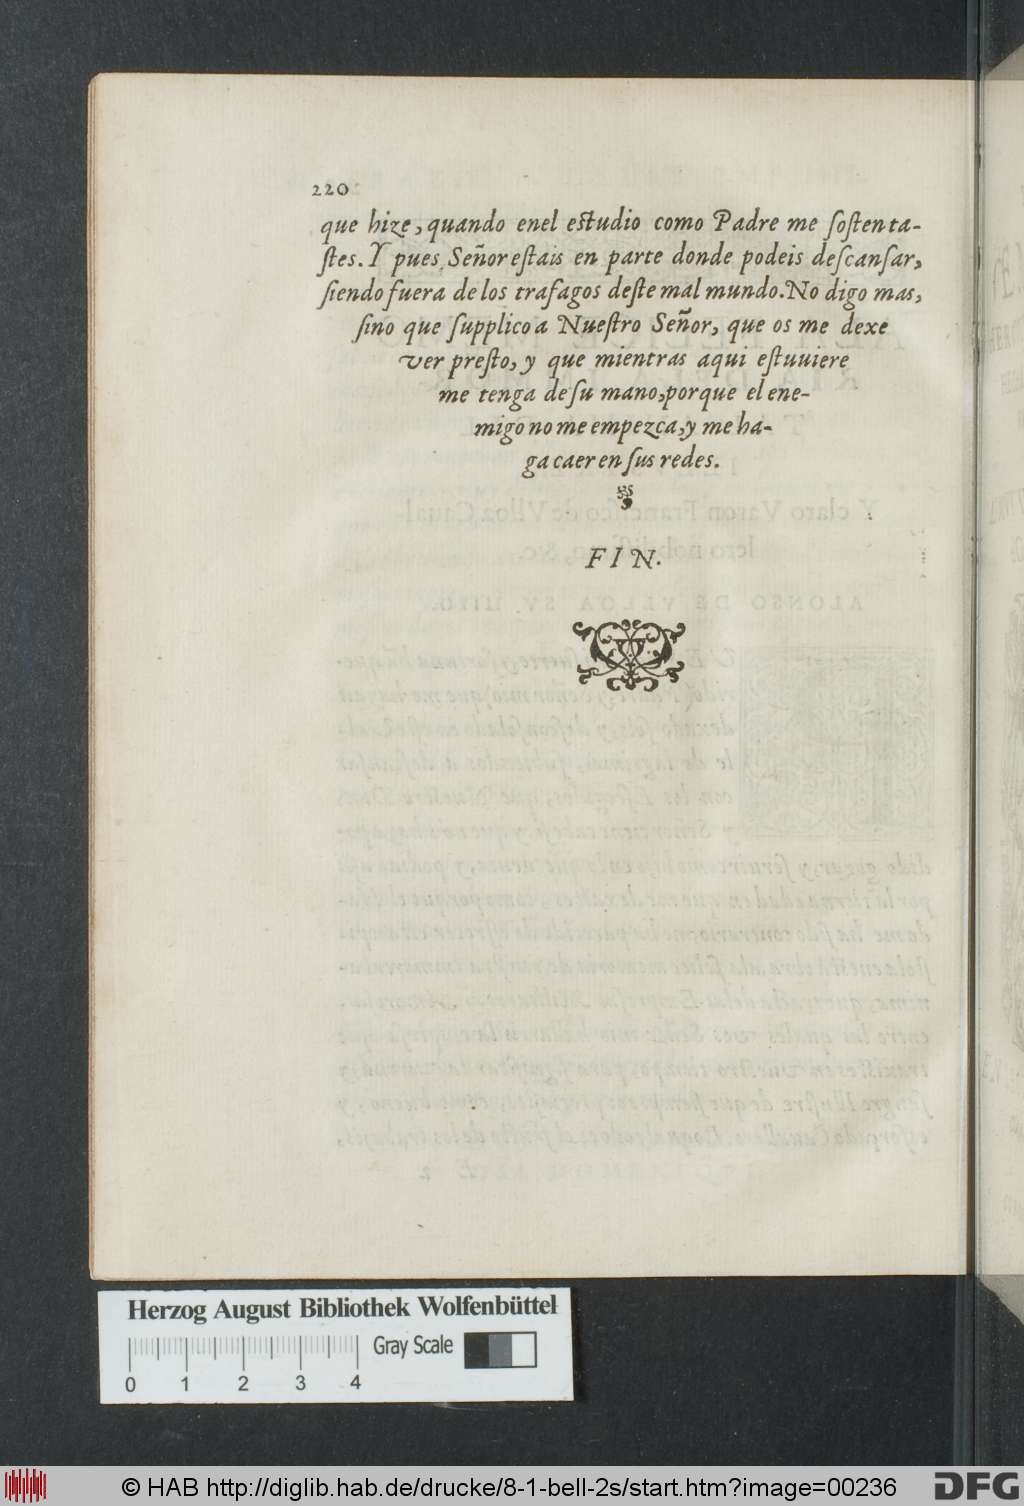 220
que hize, quando enel eſtudio como Padre me ſoſtenta-
ſtes. Y pues Señor eſtais en parte donde podeis deſcanſar,
ſiendo fuera de los trafagos deſte mal mundo. No digo mas,
ſino que ſupplico a Nueſtro Señor, que os me dexe
ver preſto, y que mientras aqui eſtuuiere
me tenga de ſu mano, porque el ene-
migo no me empezca, y me ha-
ga caer en ſus redes.
FIN.
Herzog August Bibliothek Wolfenbüttel
Gray Scale
0 1 2 3 4
© HAB http://diglib.hab.de/drucke/8-1-bell-2s/start.htm?image=00236
DFG